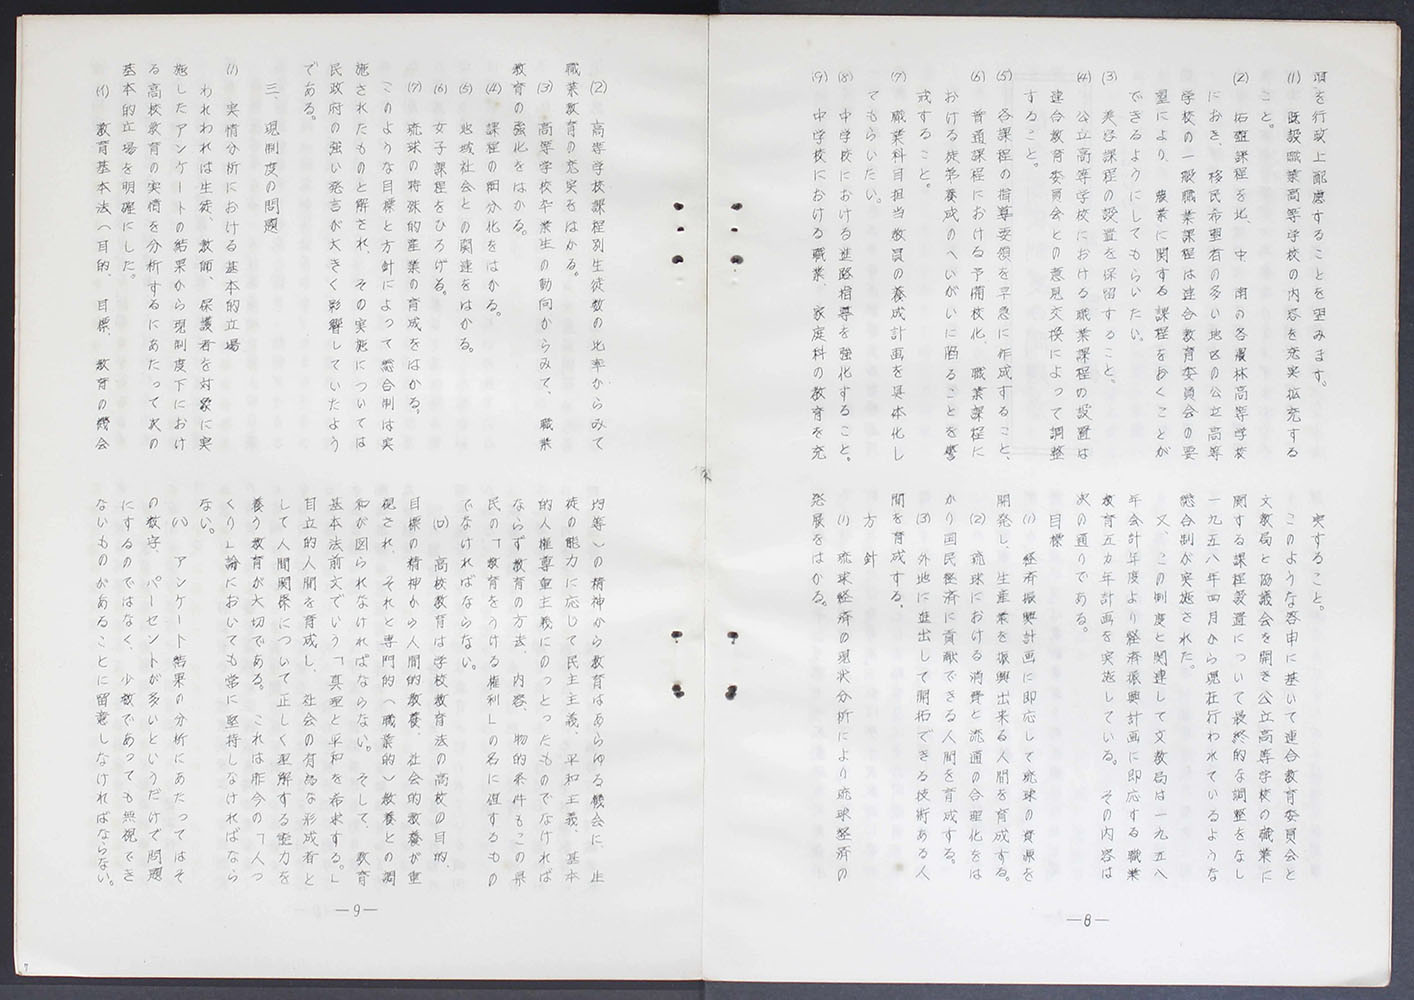 項を行政上配慮することを望みます。
(1) 既設職業高等学校の内容を充実拡充する
こと。
(2) 拓殖課程を北、中、南の各農林高等学校
におき、移民希望者の多い地区の公立高等
学校の一般職業課程は連合教育委員会の要
望により、農業に関する課程をおくことが
できるようにしてもらいたい。
(3) 美容課程の設置を保留すること。
(4) 公立高等学校における職業課程の設置は
連合教育委員会との意見交換によって調整
すること。
(5) 各課程の指導要領を早急に作成すること、
(6) 普通課程における予備校化、職業課程に
おける徒弟養成のへいがいに陥ることを警
戒すること。
(7) 職業科目担当教員の養成計画を具体化し
てもらいたい。
(8) 中学校における進路指導を強化すること。
(9) 中学校における職業、家庭科の教育を充
実すること。
このような答申に基いて連合教育委員会と
文教局と協議会を開き公立高等学校の職業に
関する課程設置について最終的な調整をなし
一九五八年四月から現在行われているような
総合制が実施された。
又、この制度と関連して文教局は一九五八
年会計年度より経済振興計画に即応する職業
教育五カ年計画を実施している。その内容は
次の通りである。
目標
(1) 経済振興計画に即応して琉球の資源を
開発し、生産業を振興出来る人間を育成する。
(2) 琉球における消費と流通の合理化をは
かり国民経済に貢献できる人間を育成する。
(3) 外地に進出して開拓できる技術ある人
間を育成する、
方 針
(1) 琉球経済の現状分析により琉球経済の
発展をはかる。
—8—
(2) 高等学校課程別生徒数の比率からみて
職業教育の充実をはかる。
(3) 高等学校卒業生の動向からみて、職業
教育の強化をはかる。
(4) 課程の細分化をはかる。
(5) 地域社会との関連をはかる。
(6) 女子課程をひろげる。
(7) 琉球の特殊的産業の育成をはかる、
このような目標と方針によって総合制は実
施されたものと解され、その実施については
民政府の強い発言が大きく影響していたよう
である。
三、現制度の問題
(1) 実情分析における基本的立場
われわれは生徒、教師、保護者を対象に実
施したアンケートの結果から現制度下におけ
る高校教育の実情を分析するにあたって次の
基本的立場を明確にした。
(イ) 教育基本法(目的、目標、教育の機会
均等)の精神から教育はあらゆる機会に、生
徒の能力に応じて民主主義、平和主義、基本
的人権尊重主義にのっとったものでなければ
ならず教育の方法、内容、物的条件もこの県
民の「教育をうける権利」の名に値するもの
でなければならない。
(ロ) 高校教育は学校教育法の高校の目的、
目標の精神から人間的教養、社会的教養が重
視され、それと専門的(職業的)教養との調
和が図られなければならない。そして、教育
基本法前文でいう「真理と平和を希求する。」
自立的人間を育成し、社会の有為な形成者と
して人間関係について正しく理解する能力を
養う教育が大切である。これは昨今の「人つ
くり」論においても常に堅持しなければなら
ない。
(ハ) アンケート結果の分析にあたってはそ
の数字、パーセントが多いというだけで問題
にするのではなく、少数であっても無視でき
ないものがあることに留意しなければならない。
—9—